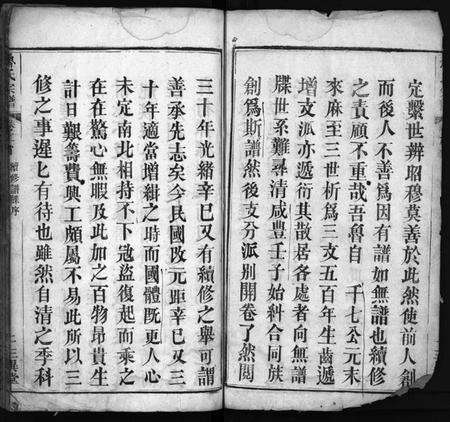 定繫世辨昭穆莫善於此然使前人創
而後人不善爲因有譜如無譜也續修
之責顧不重哉吾魯自 千七公元末
來麻至三世析爲三支五百年生齒遞
增支派亦遞衍其散居各處者向無譜
牒世系難尋清咸豊壬子始糾合同族
創爲斯譜然後支分派別開卷了然閱
三十年光緒辛巳又有續修之舉可謂
善承先志矣今民國改元距辛巳又三
十年適當增緝之時而國體既更人心
未定南北相持不下冦盜復起而乘之
在在驚心無暇及此加之百物昻貴生
計日艱籌費興工頗屬不易此所以三
修之事遲匕有待也雖然自清之季科
續修譜序